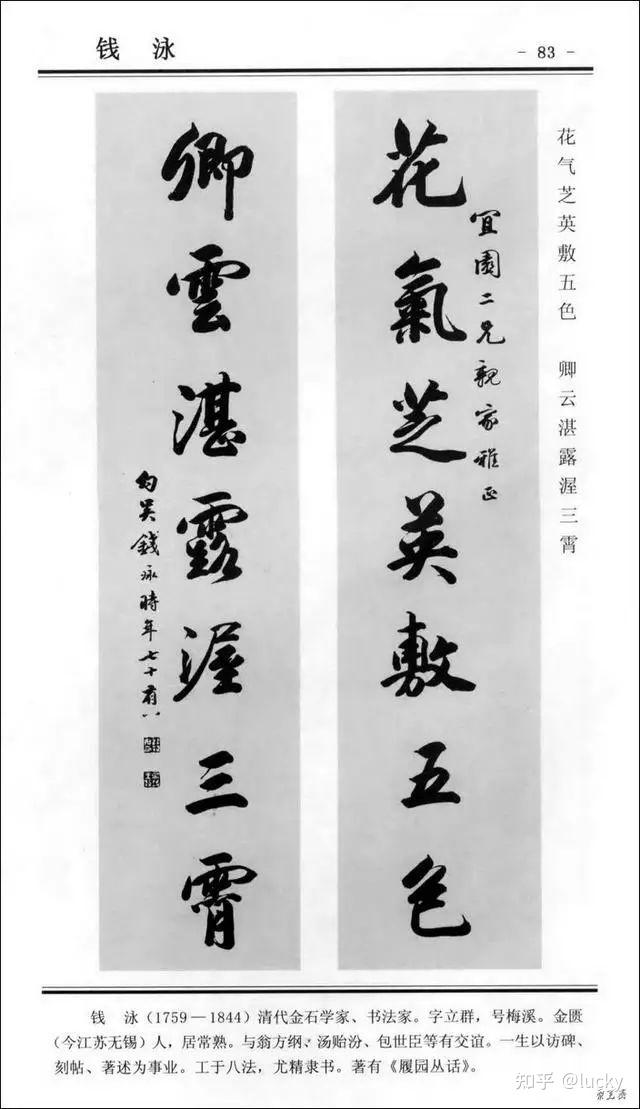 钱 泳
- 83 -
花气芝英敷五色 卿云湛露渥三霄
花氣芝英敷五色
宜園二兄親家雅正
卿雲湛露渥三霄
勾吴錢泳時年七十有八
钱 泳(1759—1844)清代金石学家、书法家。字立群,号梅溪。金匮
(今江苏无锡)人,居常熟。与翁方纲、汤贻汾、包世臣等有交谊。一生以访碑、
刻帖、著述为事业。工于八法,尤精隶书。著有《履园丛话》。
知乎 @lucky